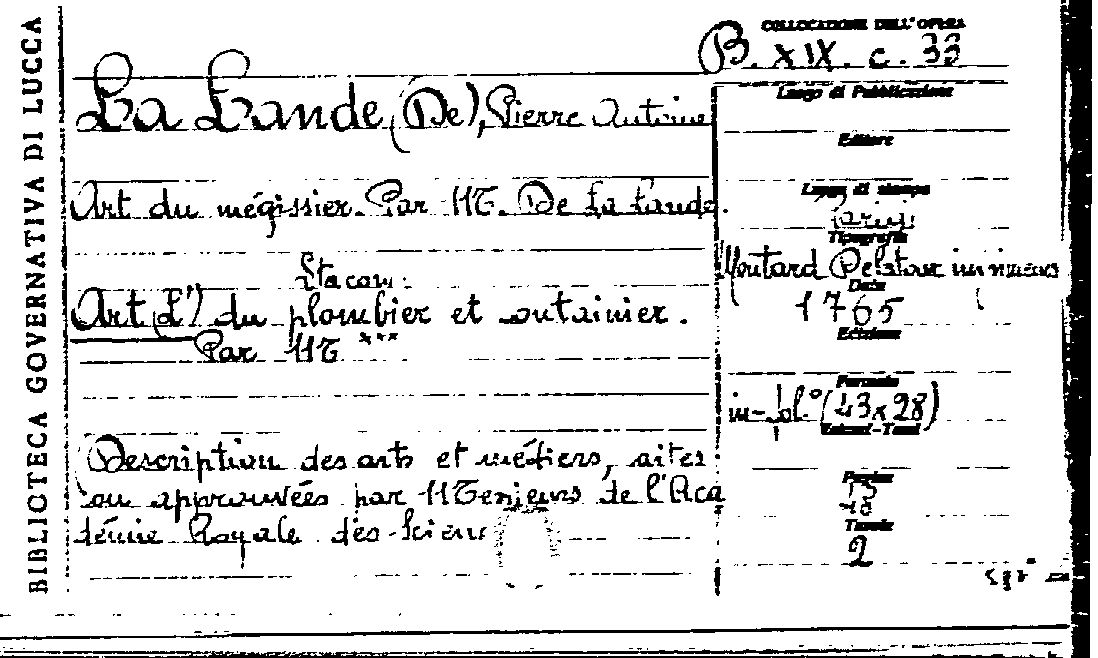 BIBLIOTECA GOVERNATIVA DI LUCCA
COLLOCAZIONE DELL'OPERA
B. XIX. c. 33
La Lande (De), Pierre Antoine
Art du mégissier. Par M. De La Lande.
Art (L') du plombier et
Par M ***
Description des arts et métiers, aites
ou approuvées par Messieurs de l'Aca
démie Royale des Scien
Luogo di Pubblicazione
Editore
Luogo di stampa
Parigi
Tipografia
Moutard
Data
1765
Edizione
Formato
in-fol.° (43x28)
Pagine
15
Tavole
2